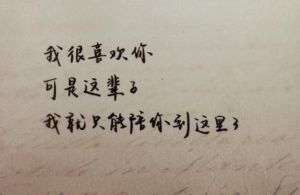 我很喜欢你
可是这辈子
我就只能陪你到这里了